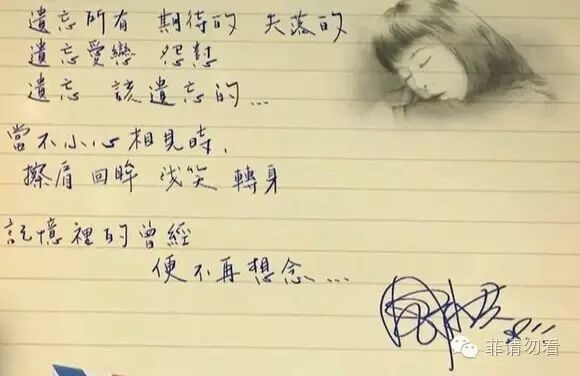 遺忘所有 期待的 失落的
遺忘愛戀 怨懟
遺忘 該遺忘的...
當不小心相見時,
擦肩 回眸 浅笑 轉身
記憶裡的曾經
便不再想念...
菲请勿看